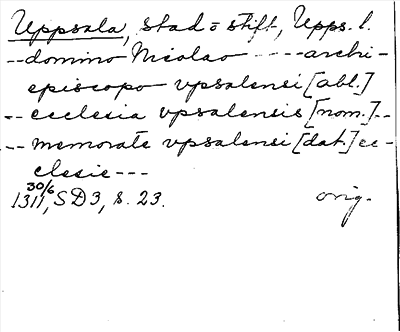 Uppsala, stad o stift, Upps. l.
-- domino Nicolao ---- archi-
episcopo vpsalensi [abl.]
-- ecclesia vpsalensis [nom.] --
-- memorate vpsalensi [dat.] ec-
clesie ---
30/6
1311, SD3, s. 23. orig.